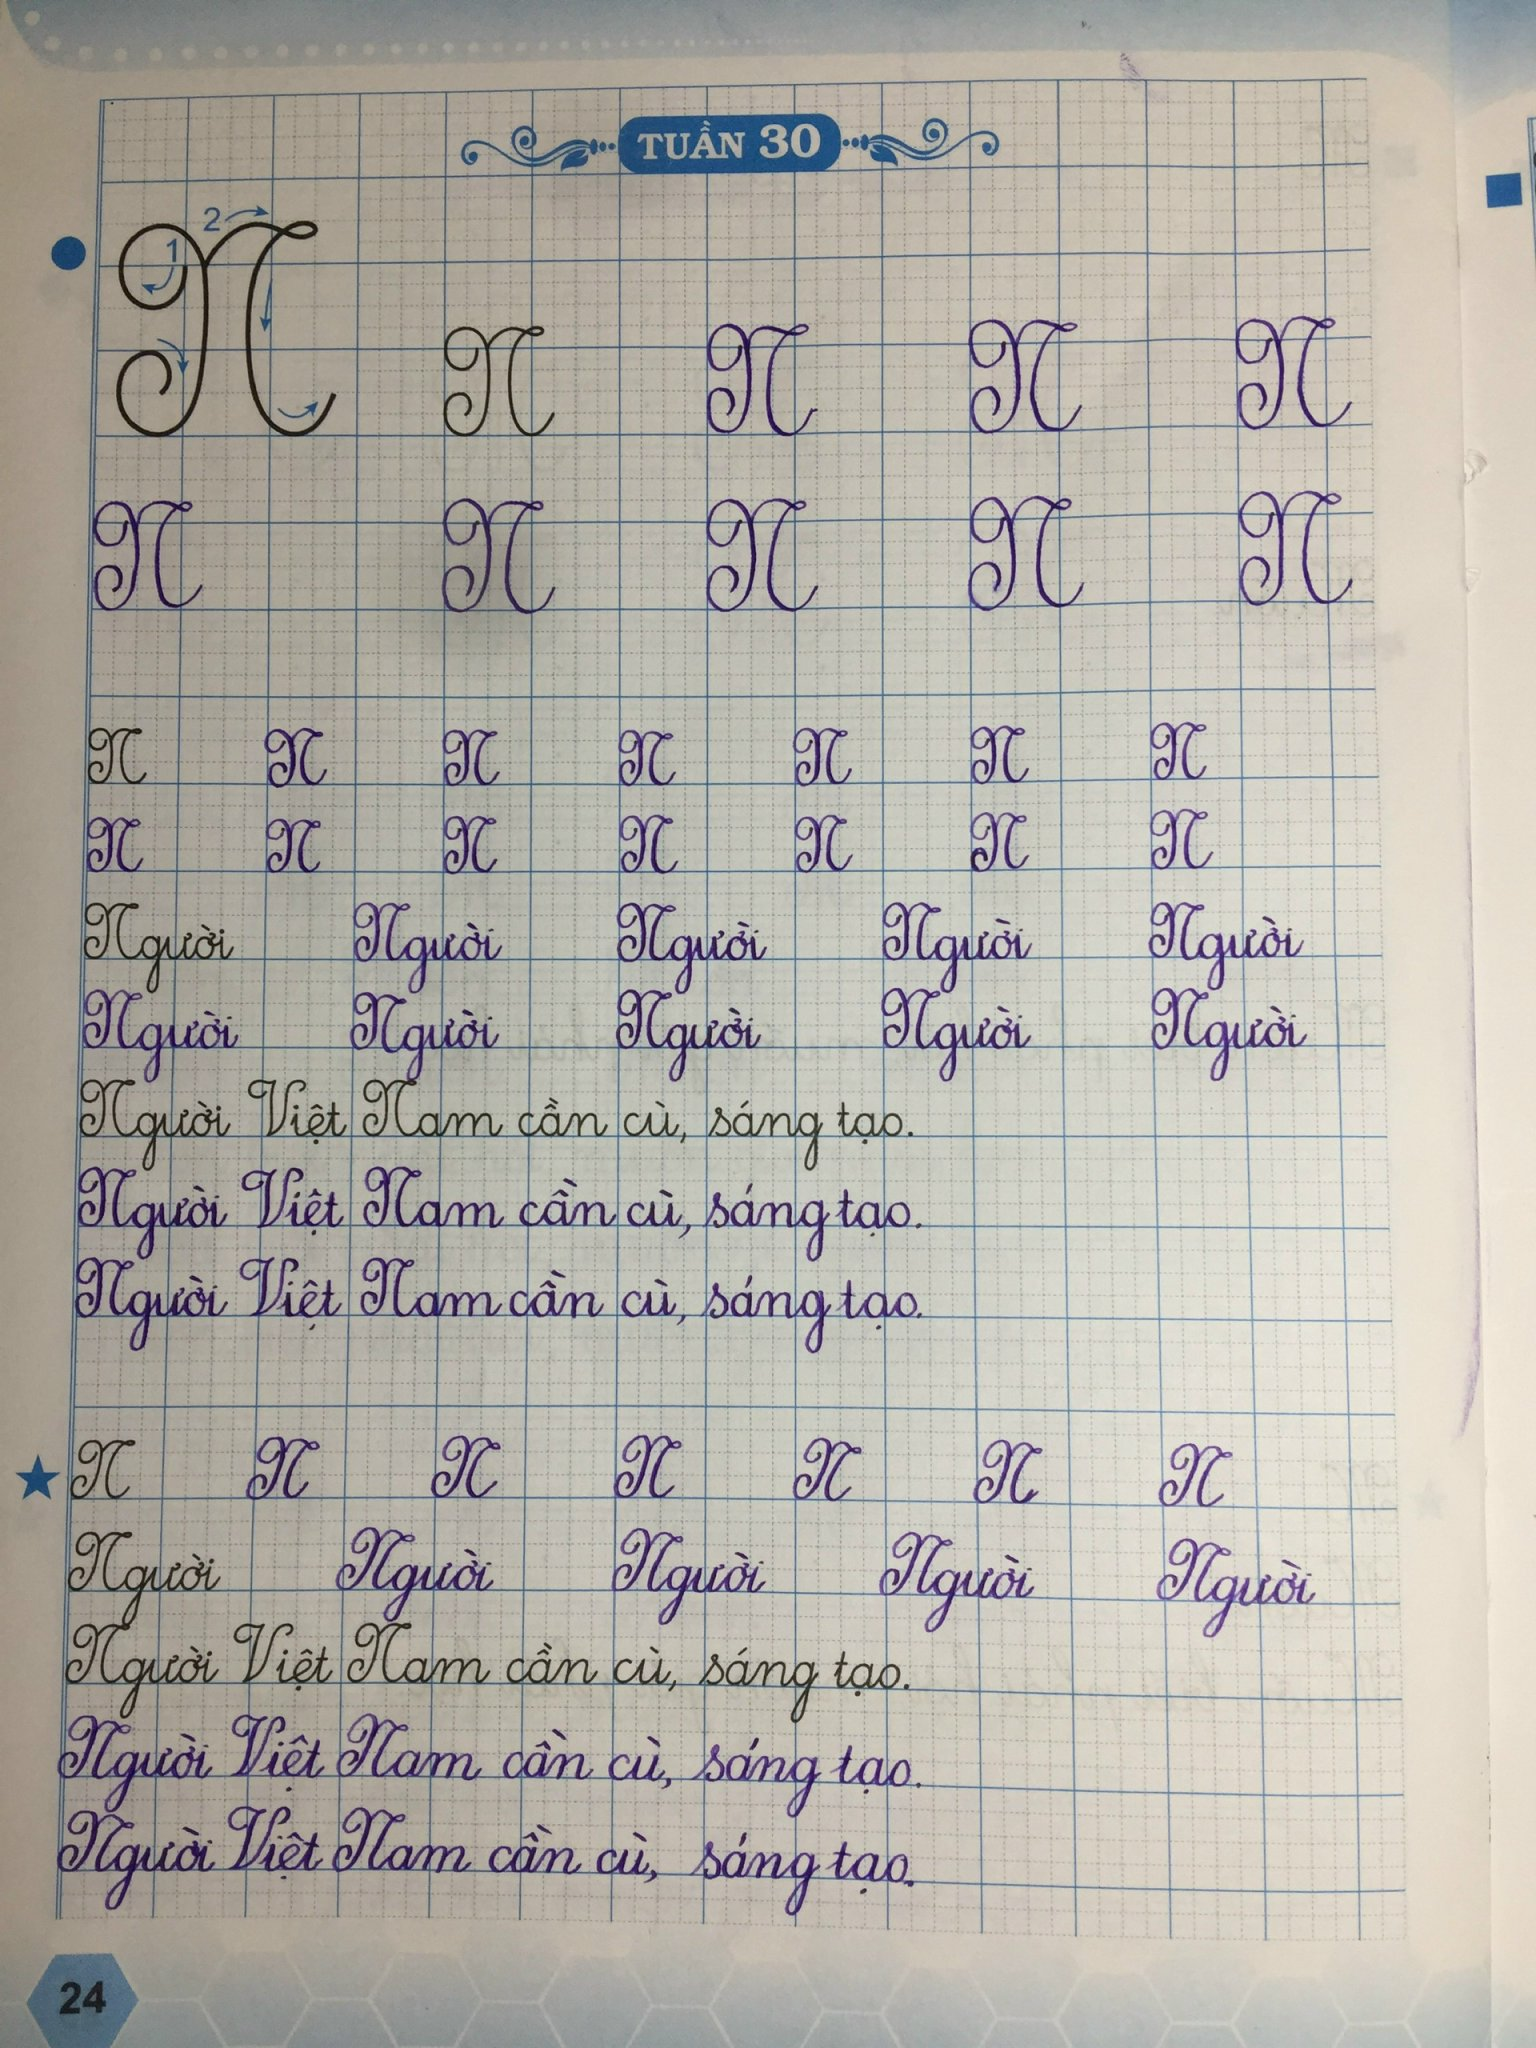 TUẦN 30
1 2
N N N N N
N N N N N
N N N N N N N
N N N N N N N
Người Người Người Người Người
Người Người Người Người Người
Người Việt Nam cần cù, sáng tạo.
Người Việt Nam cần cù, sáng tạo.
Người Việt Nam cần cù, sáng tạo.
N N N N N N N
Người Người Người Người Người
Người Việt Nam cần cù, sáng tạo.
Người Việt Nam cần cù, sáng tạo.
Người Việt Nam cần cù, sáng tạo.
24